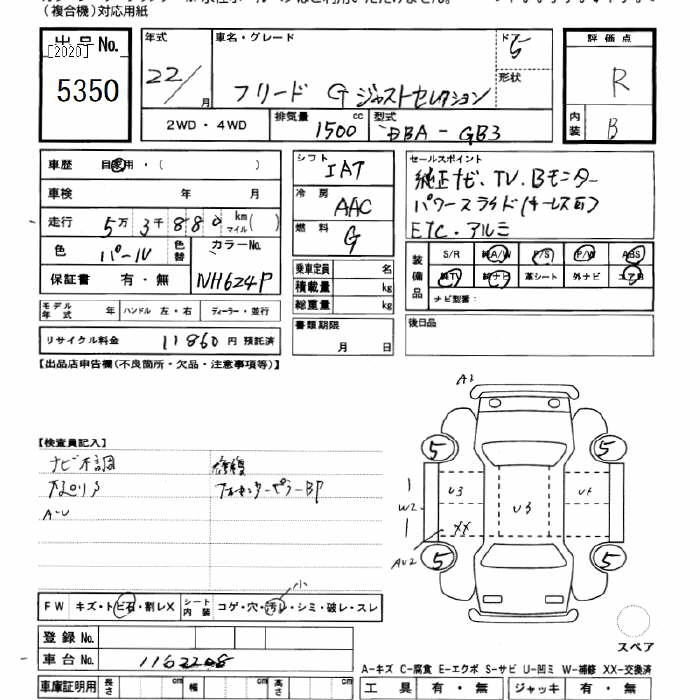 (複合機)対応用紙
出品No.
[2020]
5350
年式
22/
月
車名・グレード
フリード G ジャストセレクション
ドア
5
形状
評価点
R
内装
B
2WD・4WD
排気量
1500 cc
型式
DBA-GB3
車歴 自家用・( )
車検 年 月
走行 5万 3千 880 km マイル( )
色 パール 色替 カラーNo. NH624P
保証書 有・無
シフト
IAT
冷房
AAC
燃料
G
乗車定員 名
積載量 kg
総重量 kg
書類期限
月 日
セールスポイント
純正ナビ、TV、Bモニター
パワースライド(キーレス可)
ETC・アルミ
装備品
S/R 純A/W P/S P/W ABS
純TV 純ナビ 革シート 外ナビ エアB
ナビ型番:
後日品
モデル年式 年 ハンドル 左・右 ディーラー・並行
リサイクル料金 11860 円 預託済
【出品店申告欄(不良箇所・欠品・注意事項等)】
【検査員記入】
ナビ不調
修復
A-U
A1
5
5
U3
U3
W2
XX
AU2
5
5
FW キズ・トビ石・割レX シート内装 コゲ・穴・汚レ・シミ・破レ・スレ
小
登録No.
車台No. 1162208
スペア
A-キズ C-腐食 E-エクボ S-サビ U-凹ミ W-補修 XX-交換済
車庫証明用 長さ cm 幅 cm 高さ cm
工具 有・無 ジャッキ 有・無